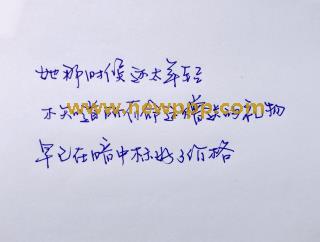 她那时候还太年轻
不知道所有命运馈赠的礼物
早已在暗中标好了价格
www.newppp.com